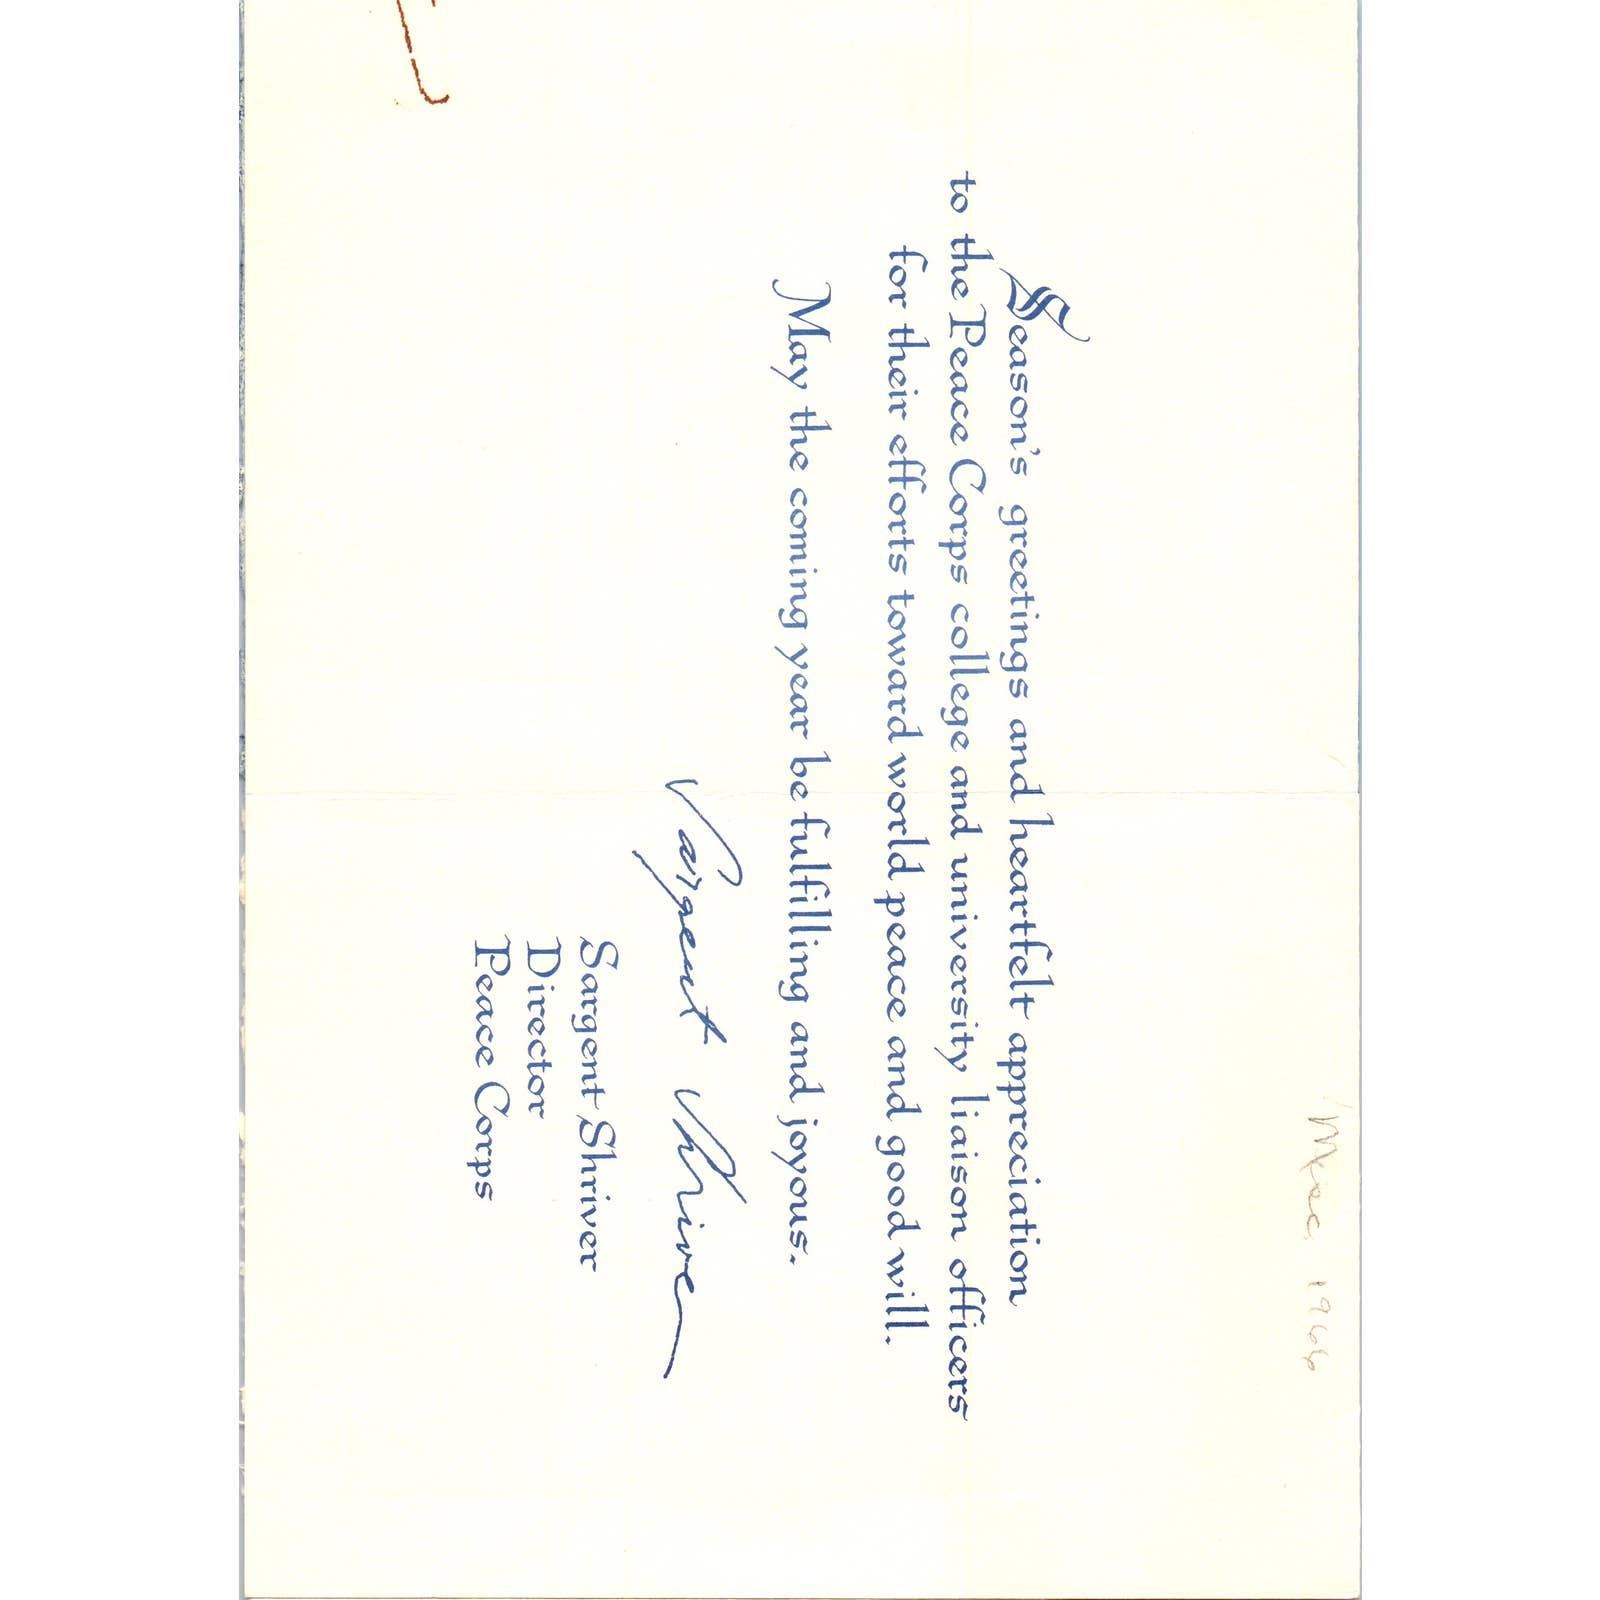 1966
Season's greetings and heartfelt appreciation
to the Peace Corps college and university liaison officers
for their efforts toward world peace and good will.
May the coming year be fulfilling and joyous.
Sargent Shriver
Sargent Shriver
Director
Peace Corps